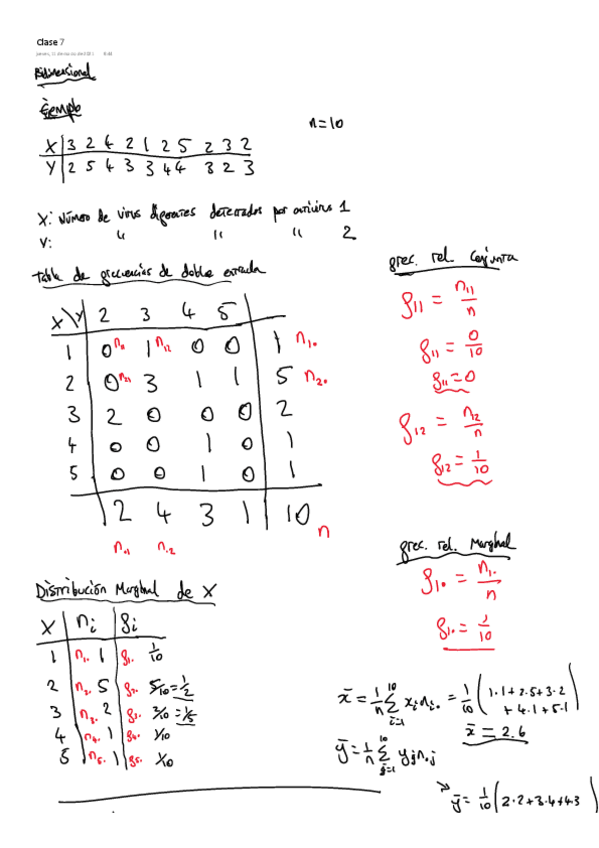 Clase 7
8:48
Bidimensional
Ejemplo
n=10
X | 3 2 4 2 1 2 5 2 3 2
Y | 2 5 4 3 3 4 4 3 2 3
X: Número de virus diferentes detectados por antivirus 1
Y: " " " 2
Tabla de frecuencias de doble entrada
X\Y | 2 3 4 5
1 | 0 n₁₁ 1 n₁₂ 0 0 | 1 n₁.
2 | 0 n₂₁ 3 1 1 | 5 n₂.
3 | 2 0 0 0 | 2
4 | 0 0 1 0 | 1
5 | 0 0 1 0 | 1
| 2 4 3 1 | 10 n
n.₁ n.₂
frec. rel. Conjunta
f₁₁ = n₁₁/n
f₁₁ = 0/10
f₁₁ = 0
f₁₂ = n₁₂/n
f₁₂ = 1/10
frec. rel. Marginal
f₁. = n₁./n
f₁. = 1/10
Distribución Marginal de X
X | nᵢ | fᵢ
1 | n₁. 1 | f₁. 1/10
2 | n₂. 5 | f₂. 5/10 = 1/2
3 | n₃. 2 | f₃. 2/10 = 1/5
4 | n₄. 1 | f₄. 1/10
5 | n₅. 1 | f₅. 1/10
x̄ = 1/n Σ¹⁰ᵢ₌₁ xᵢnᵢ. = 1/10 (1·1+2·5+3·2
+4·1+5·1)
x̄ = 2.6
ȳ = 1/n Σ¹⁰ⱼ₌₁ yⱼn.ⱼ
ȳ = 1/10 (2·2+3·4+4·3